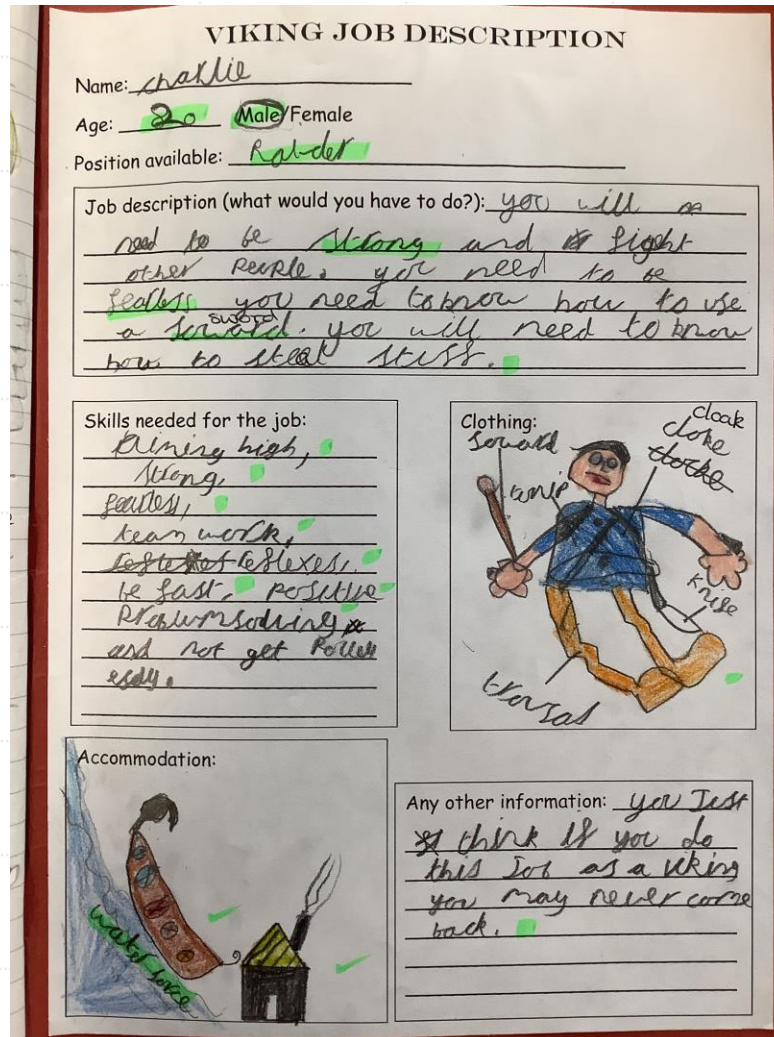 VIKING JOB DESCRIPTION
Name: Charlie
Age: 20 Male/Female
Position available: Raider
Job description (what would you have to do?): you will
need to be strong and fight
other people. you need to be
fearless you need to know how to use
sword
a soward. you will need to know
how to steal stuff.
Skills needed for the job:
Aiming high,
strong,
fearless,
team work,
reflexes,
be fast, positive
and not get
Clothing:
soward
cloak
cloke
knife
trousas
Accommodation:
water sorce
Any other information: you Just
think if you do
this Job as a viking
you may never come
back.